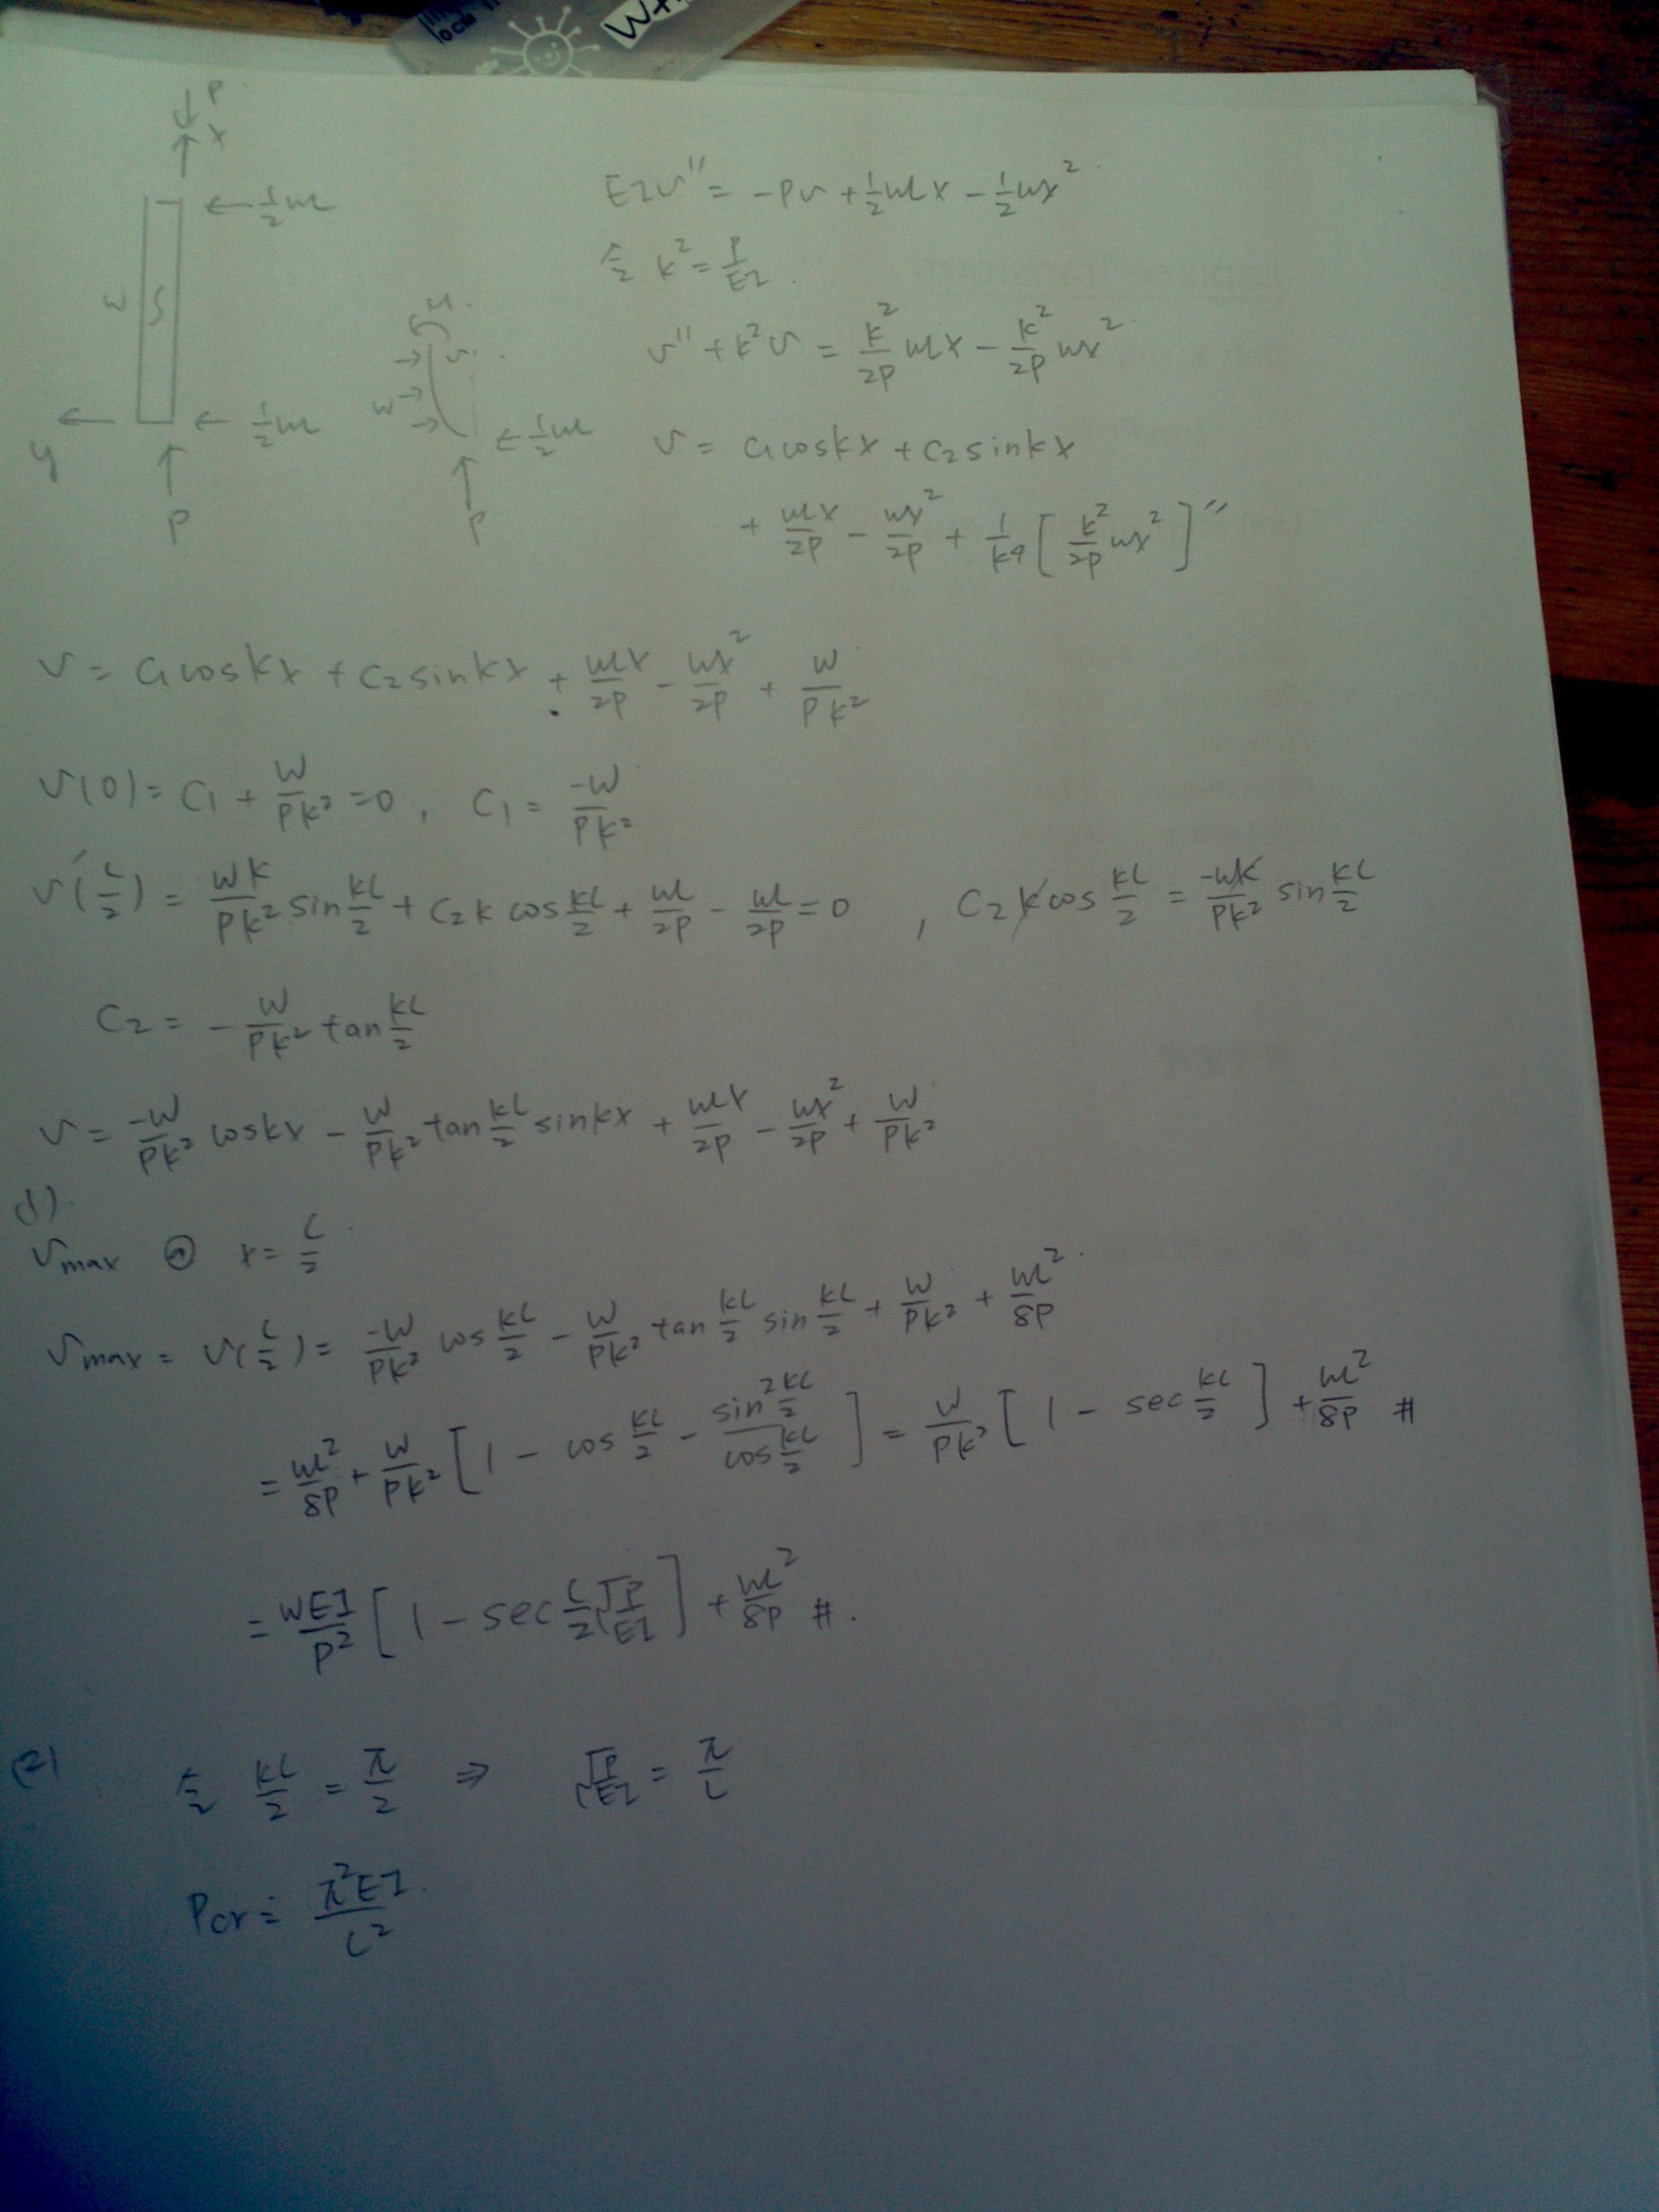 P
x
← ½wL
EIv'' = -Pv + ½wLx - ½wx²
令 k² = P/EI
w
S
M
v
v'' + k²v = k²/2P wLx - k²/2P wx²
w
← ½wL
← ½wL
y
P
P
v = c₁coskx + c₂sinkx
+ wLx/2P - wx²/2P + 1/k⁴ [k²/2P wx²]''
v = c₁coskx + c₂sinkx + wLx/2P - wx²/2P + w/Pk²
v(0) = C₁ + w/Pk² = 0 , C₁ = -w/Pk²
v'(L/2) = wk/Pk² sin kL/2 + C₂k cos kL/2 + wL/2P - wL/2P = 0 , C₂k cos kL/2 = -wk/Pk² sin kL/2
C₂ = - w/Pk² tan kL/2
v = -w/Pk² coskx - w/Pk² tan kL/2 sinkx + wLx/2P - wx²/2P + w/Pk²
(1)
vmax @ x = L/2
vmax = v(L/2) = -w/Pk² cos kL/2 - w/Pk² tan kL/2 sin kL/2 + w/Pk² + wL²/8P
= wL²/8P + w/Pk² [1 - cos kL/2 - sin² kL/2 / cos kL/2] = w/Pk² [1 - sec kL/2] + wL²/8P #
= wEI/P² [1 - sec L/2 √P/EI] + wL²/8P #.
(2) 令 kL/2 = π/2 ⇒ √P/EI = π/L
Pcr = π²EI/L²